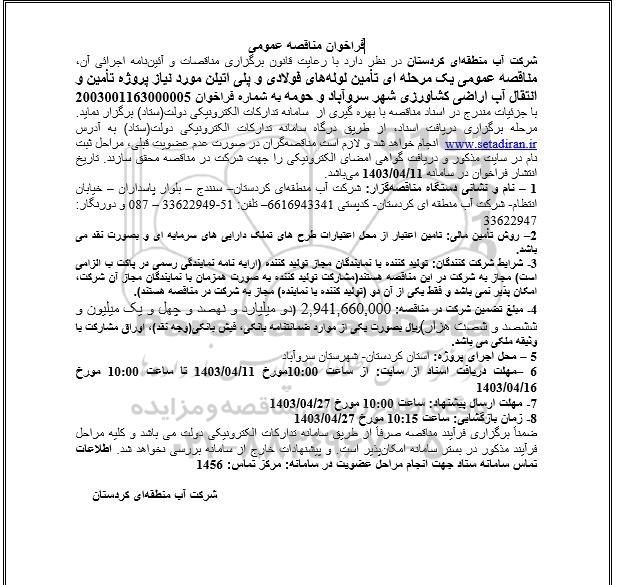 فراخوان مناقصه عمومی
شرکت آب منطقه‌ای کردستان در نظر دارد با رعایت قانون برگزاری مناقصات و آئین‌نامه اجرائی آن،
مناقصه عمومی یک مرحله ای تأمین لوله‌های فولادی و پلی اتیلن مورد نیاز پروژه تأمین و
انتقال آب اراضی کشاورزی شهر سروآباد و حومه به شماره فراخوان 2003001163000005
با جزئیات مندرج در اسناد مناقصه با بهره گیری از سامانه تدارکات الکترونیکی دولت(ستاد) برگزار نماید.
مرحله برگزاری دریافت اسناده از طریق درگاه سامانه تدارکات الکترونیکی دولت(ستاد) به آدرس
www.setadiran.ir انجام خواهد شد و لازم است مناقصه‌گران در صورت عدم عضویت قبلی، مراحل ثبت
نام در سایت مذکور و دریافت گواهی امضای الکترونیکی را جهت شرکت در مناقصه محقق سازند. تاریخ
انتشار فراخوان در سامانه 1403/04/11 می‌باشد.
1 – نام و نشانی دستگاه مناقصه‌گزار: شرکت آب منطقه‌ای کردستان– سنندج – بلوار پاسداران – خیابان
انتظام- شرکت آب منطقه ای کردستان- کدپستی 6616943341– تلفن: 51-33622949 – 087 و دورنگار:
33622947
2– روش تأمین مالی: تامین اعتبار از محل اعتبارات طرح های تملک دارایی های سرمایه ای و بصورت نقد می
باشد.
3- شرایط شرکت کنندگان: تولید کننده یا نمایندگان مجاز تولید کننده (ارایه نامه نمایندگی رسمی در پاکت ب الزامی
است) مجاز به شرکت در این مناقصه هستند(مشارکت تولید کننده به صورت همزمان با نمایندگان مجاز آن شرکت،
امکان پذیر نمی باشد و فقط یکی از آن دو (تولید کننده یا نماینده) مجاز به شرکت در مناقصه هستند).
4– مبلغ تضمین شرکت در مناقصه: 2,941,660,000 (دو میلیارد و نهصد و چهل و یک میلیون و
ششصد و شصت هزار)ریال بصورت یکی از موارد ضمانتنامه بانکی، فیش بانکی(وجه نقد)، اوراق مشارکت یا
وثیقه ملکی می باشد.
5 – محل اجرای پروژه: استان کردستان- شهرستان سروآباد
6 –مهلت دریافت اسناد از سایت: از ساعت 10:00مورخ 1403/04/11 تا ساعت 10:00 مورخ
1403/04/16
7- مهلت ارسال پیشنهاد: ساعت 10:00 مورخ 1403/04/27
8- زمان بازگشایی: ساعت 10:15 مورخ 1403/04/27
ضمناً برگزاری فرآیند مناقصه صرفاً از طریق سامانه تدارکات الکترونیکی دولت می باشد و کلیه مراحل
فرآیند مذکور در بستر سامانه امکان‌پذیر است. و پیشنهادات خارج از سامانه بررسی نخواهد شد. اطلاعات
تماس سامانه ستاد جهت انجام مراحل عضویت در سامانه: مرکز تماس: 1456
شرکت آب منطقه‌ای کردستان